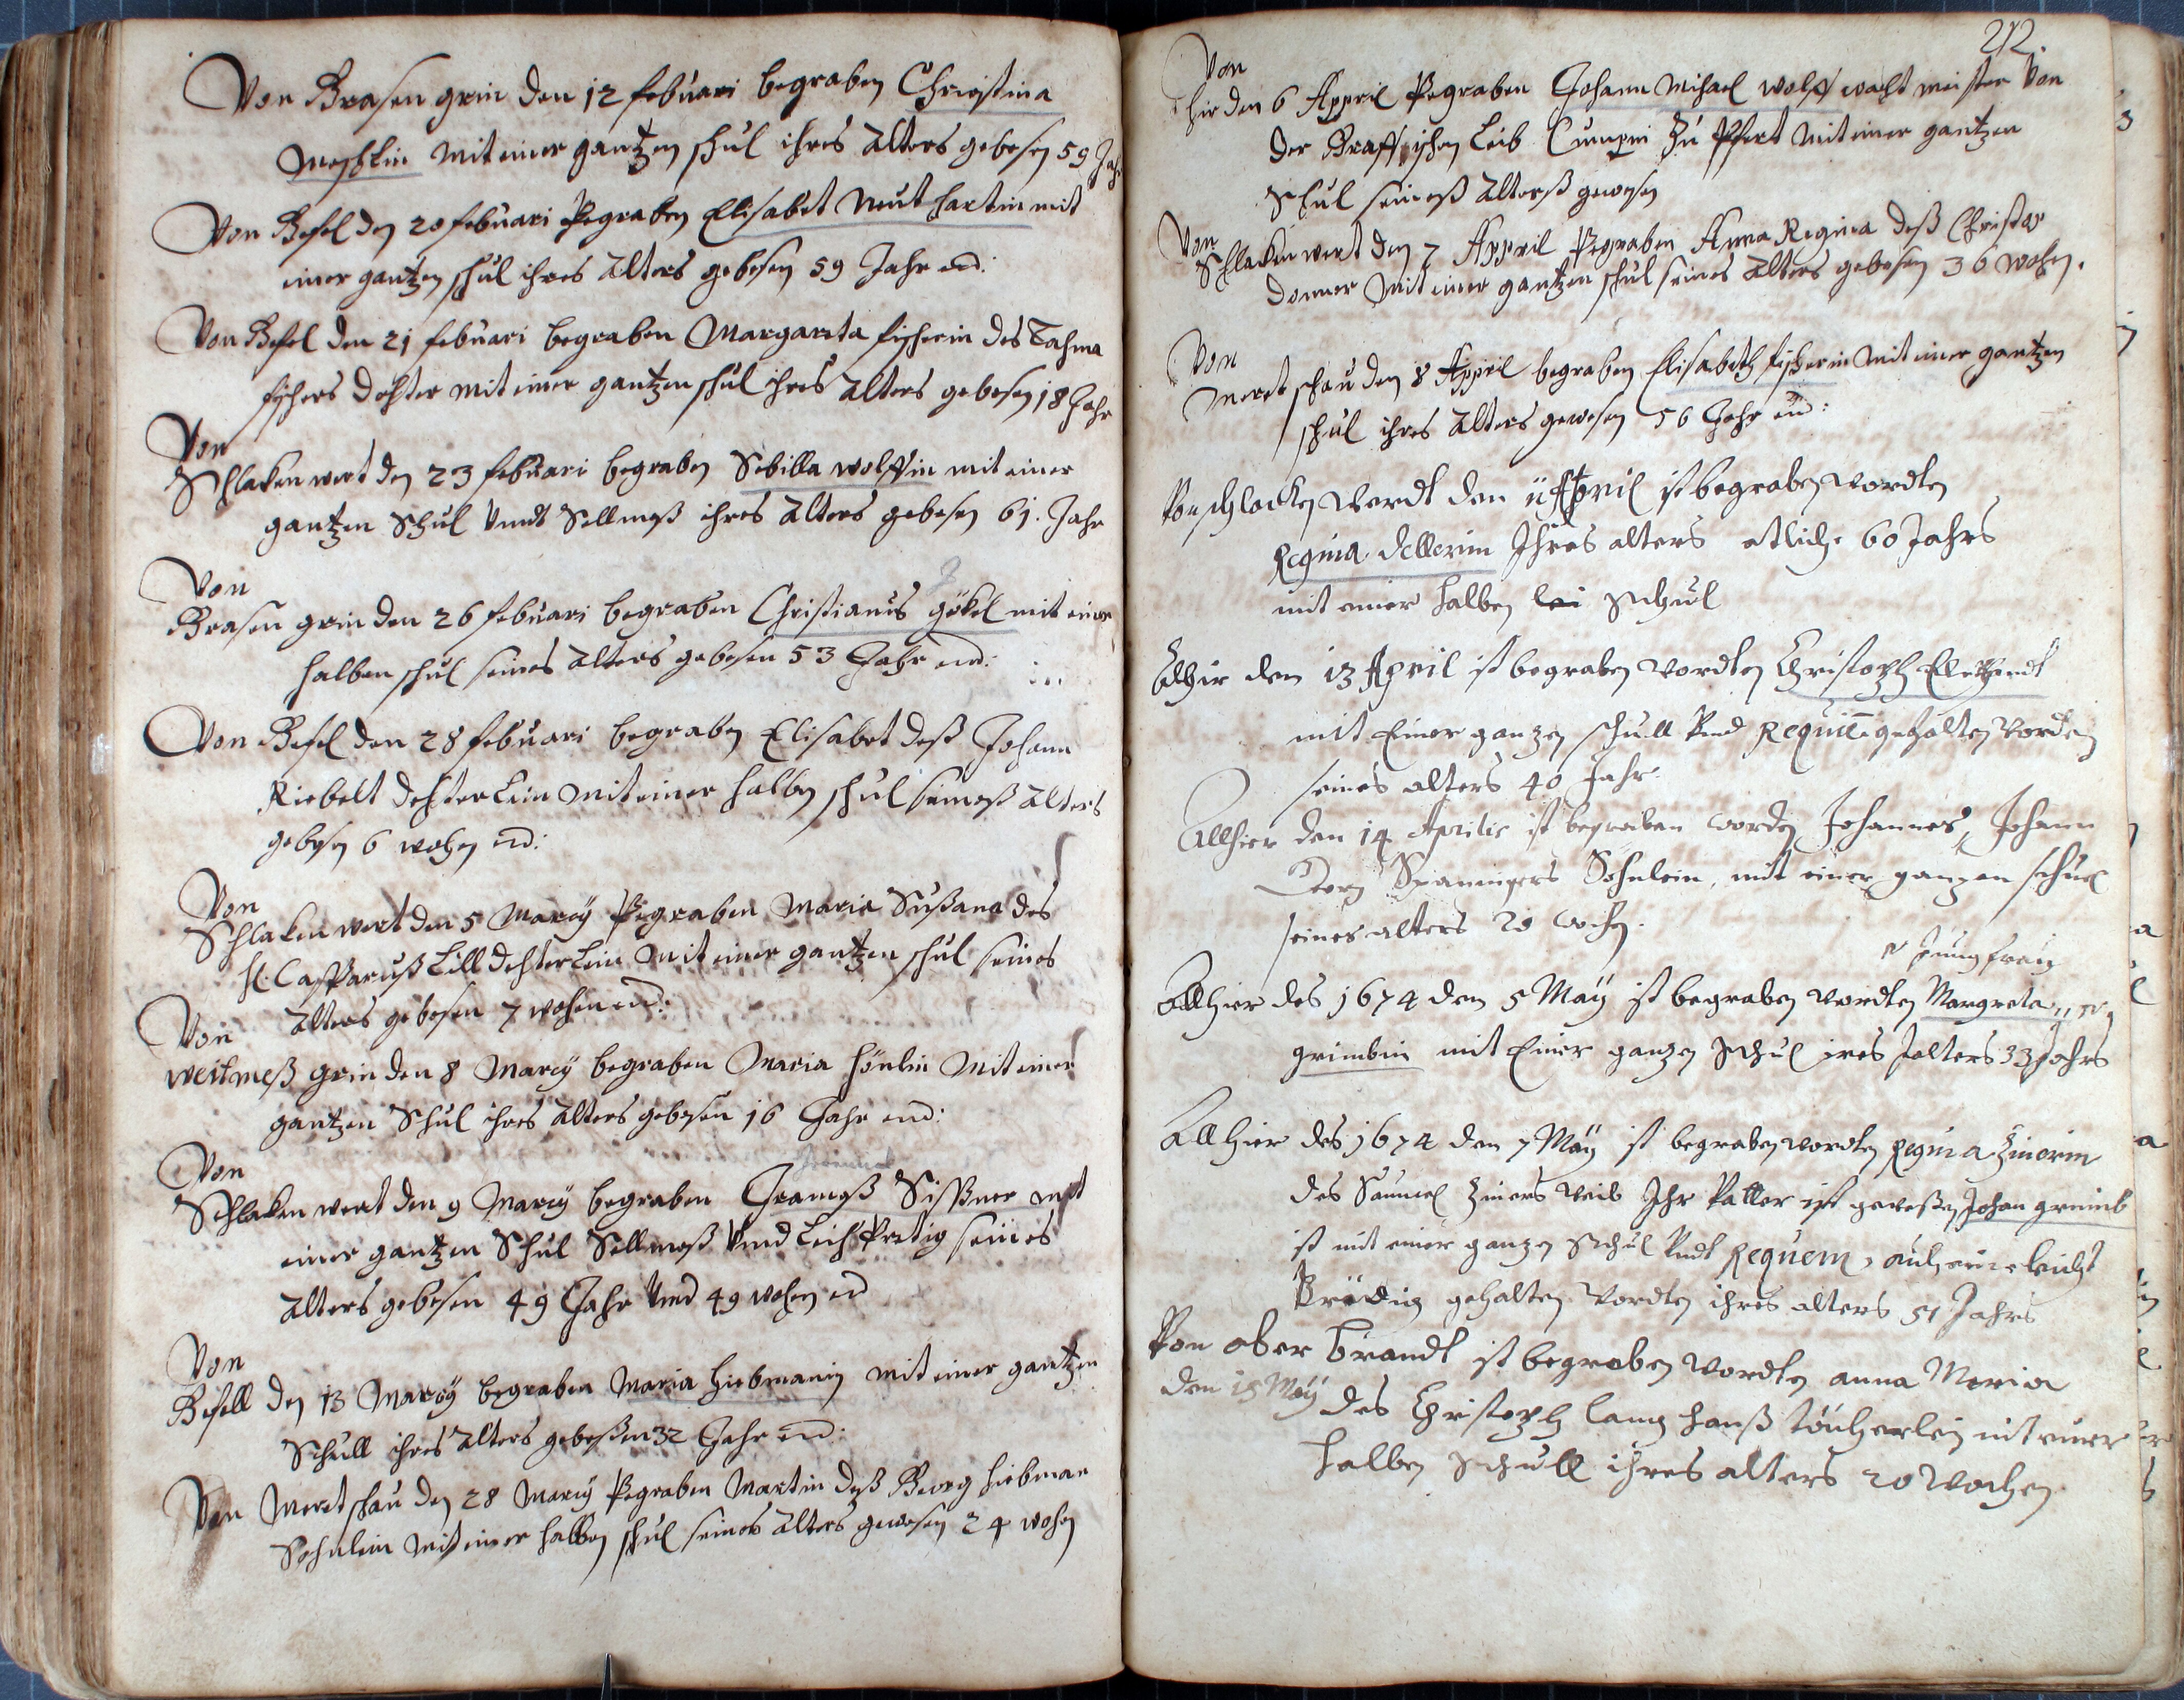 Von Brasen grin den 12 febuari begraben Christina
Meschkin mit einer gantzen schul ihres alters gebesen 59 Jahr
Von Besel den 20 febuari Pegraben Elisabet Mut hartin mit
einer gantzen schul ihres alters gebesen 59 Jahr
Von Besel den 21 febuari begraben Margareta fischerin des
fischers dohter mit einer gantzen schul ihres alters gebesen 18 Jahr
Von
Schlaken wert den 23 febuari begraben Sebilla wolffin mit einer
gantzen Schul Vnndt Sellmeß ihres alters gebesen 61. Jahr
Von
Brasen grin den 26 febuari begraben Christianus gökel mit einer
halben schul seines alters gebesen 53 Jahr
Von Besel den 28 febuari begraben Elisabet deß Johann
Riebelt dehterlein mit einer halben schul seineß alters
gebesen 6 wohen
Von
Schlaken wert den 5 Marcÿ Pegraben Maria Sußana des
H: Casparuß Lill dehterlein mit einer gantzen schul seines
alters gebesen 7 wohen
Von
weitmeß grin den 8 Marcÿ begraben Maria hönlin mit einer
gantzen Schul ihres alters gebesen 16 Jahr
Von
Schlaken wert den 9 Marcÿ begraben Sißner mit
einer gantzen Schul Sellmeß Vnnd Leich Pretig seines
alters gebesen 49 Jahr Vnnd 49 wohen
Von
Besell den 13 Marcÿ begraben Maria Hiebmanin mit einer gantzen
Schull ihres alters gebeßen 32 Jahr
Von Meretschau den 28 Marcÿ Pegraben Martin deß Georg Hiebman
Sohnlein mit einer halben schul seines alters gewesen 24 wohen
212.
Von
hir den 6 Appril Pegraben Johann Mihael wolff waht meister Von
der Leib Cumpni Zu Pfert mit einer gantzen
Schul seineß alterß gewesen
Von
Schlaken wert den 7 Appril Pegraben Anna Regina deß Christof
donner mit einer gantzen schul seines alters gebesen 36 wohen.
Von
Meretschau den 8 Appril begraben Elisabeth fischerin mit einer gantzen
schul ihres alters gewesen 56 Jahr
Von schlacken Werdt den 11 April ist begraben wordten
Regina dellerin Ihres alters etliche 60 Jahrs
mit einer halben Schul
Alhir den 13 April ist begraben wordten Christoph
mit Einer ganzen schull Vnd Requiē gehalten Worden
seines alters 40 Jahr.
Allhier den 14 Aprilis ist begraben worden Johannes, Johann
Georg Spaningers Sohnlein, mit einer ganzen schuel
seines alters 20 wochen.
Jungfrau
Allhier des 1674 den 5 Maÿ ist begraben wordten Margreta
grimbin mit Einer ganzen Schul ires Jalters 33 Jahrs
Allhier des 1674 den 7 Maÿ ist begraben wordten Regina Zinerin
des Samuel Ziners Weib Ihr Vatter ist geweßen Johan grimb
ist mit einer ganzen Schul Vndt Requem, auch eine leicht
Prödig gehalten Wordten ihres alters 51 Jahrs
Von ober brandt ist begraben wordten anna Maria
den 15 Maÿ des Christoph lang hanß töcherlein mit einer
halben Schull ihres alters 20 Wochen